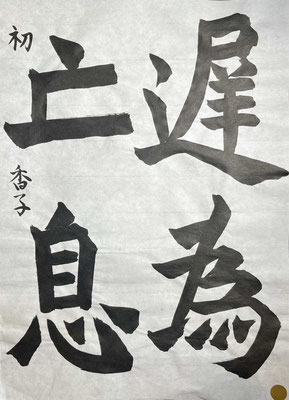 遅為
亡息
初 香子